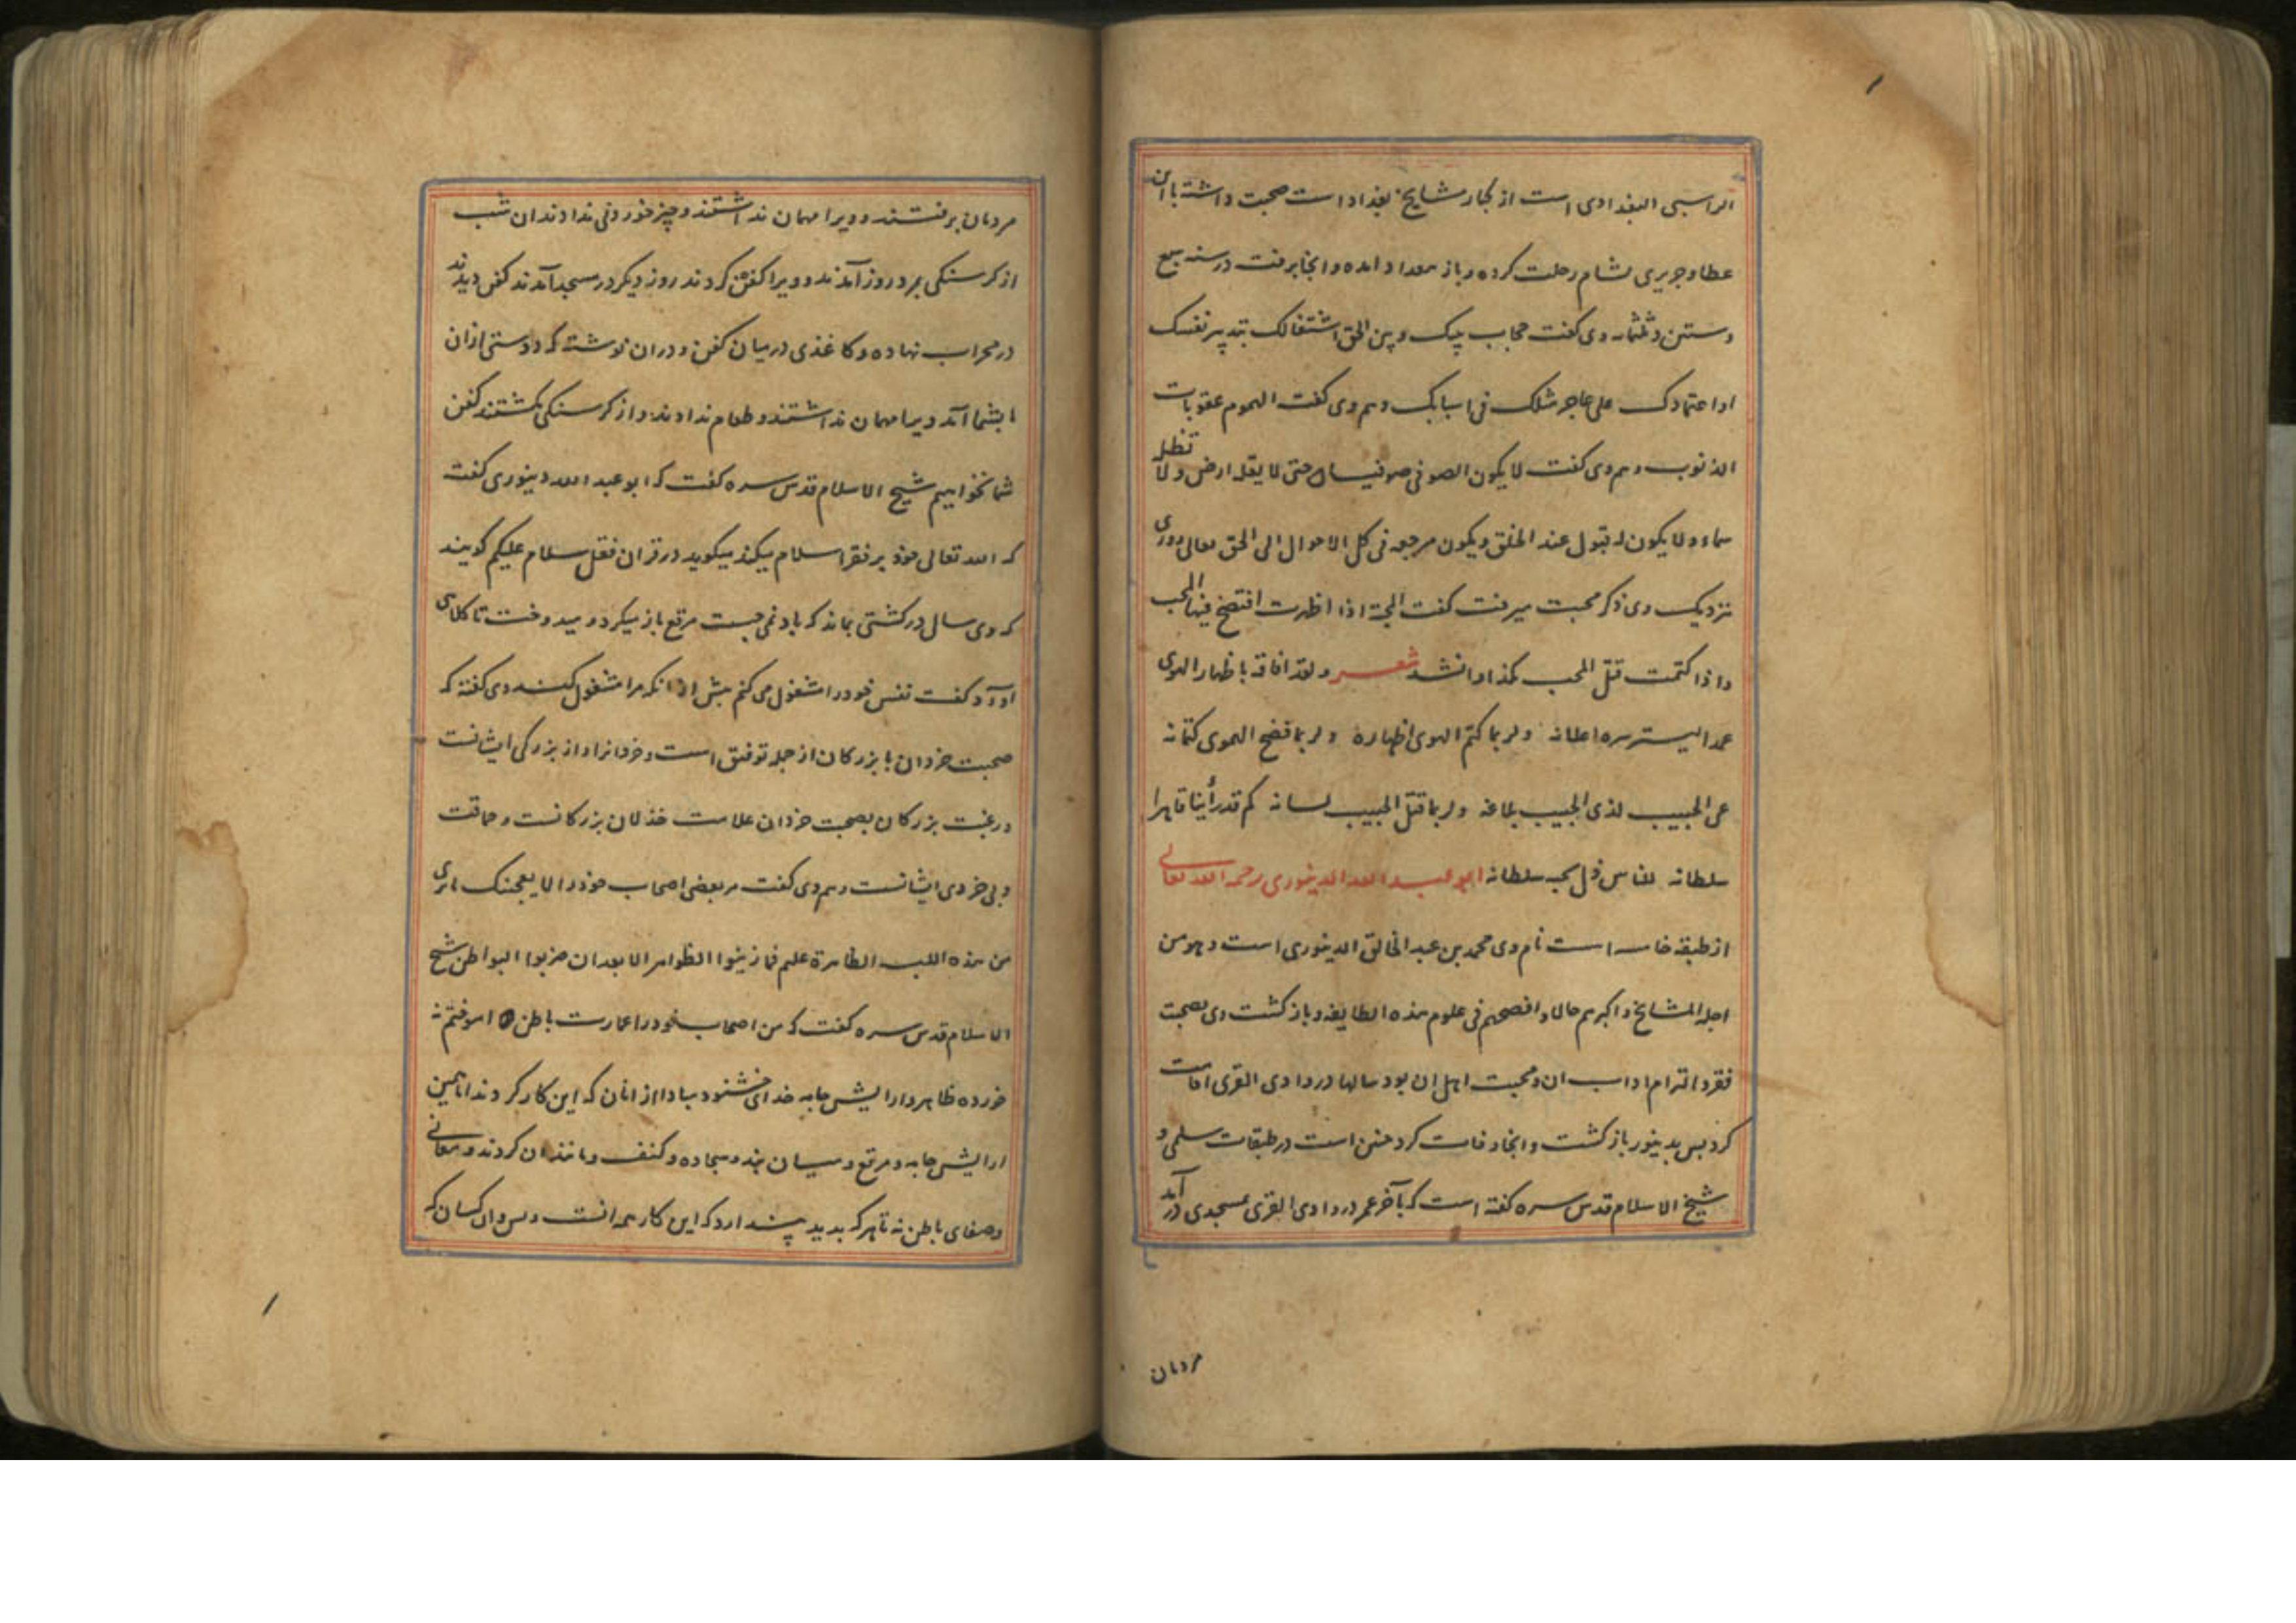 الراسبی البغدادی است از کبار مشایخ بغداد است صحبت داشته با ابن
عطا و جریری بشام رحلت کرده و باز ببغداد امده و انجا برفت در سنه سبع
و ستین و ثلثمایه وی گفت حجاب بینک و بین الحق اشتغالک بتدبیر نفسک
او اعتمادک علی عاجز مثلک فی اسبابک و هم وی گفت الهموم عقوبات
الذنوب و هم وی گفت لا یکون الصوفی صوفیا حتی لا یقله ارض و لا تظله
سماء و لا یکون له قبول عند الخلق و یکون مرجعه فی کل الاحوال الی الحق تعالی روزی
نزدیک وی ذکر محبت میرفت گفت المحبة اذا اظهرت افتضح فیها المحب
و اذا کتمت قتل المحب کمدا و انشد شعر و لقد افاقه باظهار الهوی
عمدا لیستر سره اعلانه و لربما کتم الهوی اظهاره و لربما فضح الهوی کتمانه
عی الحبیب لذی الحبیب بلاغه و لربما قتل الحبیب لسانه کم قد رأینا قاهرا
سلطانه للناس ذل بحب سلطانه ابو عبد الله الدینوری رحمه الله تعالی
از طبقه خامسه است نام وی محمد بن عبد الخالق الدینوری است و هو من
اجله المشایخ و اکبرهم حالا و افصحهم فی علوم هذه الطایفه و باز گشت وی بصحبت
فقر و التزام اداب ان و محبت اهل ان بود سالها در وادی القری اقامت
کرد بس بدینور باز گشت و انجا وفات کرد چنین است در طبقات سلمی و
شیخ الاسلام قدس سره گفته است که بآخر عمر در وادی القری بمسجدی درآمد
مردمان
مردمان برفتند و ویرا مهمان نداشتند و چیز خوردنی ندادند ان شب
از کرسنکی بمرد روز آمدند و ویرا کفن کردند روز دیکر در مسجد آمدند کفن دیدند
در محراب نهاده و کاغذی در میان کفن و در ان نوشته که دوستی از ان
ما بشما آمد ویرا مهمان نداشتند و طعام ندادند و از کرسنکی بکشتند کفن
شما نخواهیم شیخ الاسلام قدس سره گفت که ابو عبد الله دینوری گفت
که الله تعالی خود بر فقرا سلام میکند میکوید در قران فقل سلام علیکم کویند
که وی سال در کشتی بماند که باد نمی جست مرقع باز میکرد و میدوخت تا کلاهی
اورد گفت نفس خود را مشغول می کنم پیش از انکه مرا مشغول کند وی گفته که
صحبت خردان با بزرکان از جمله توفیق است و خردانرا و از بزرکی ایشانست
و رغبت بزرکان بصحبت خردان علامت خذلان بزرکانست و حماقت
و بی خردی ایشانست و هم وی گفت مر بعضی اصحاب خود را لا یعجبنک ما تری
من هذه اللبسه الظاهرة علیهم فما زینوا الظواهر الا بعد ان خربوا البواطن شیخ
الاسلام قدس سره گفت که من اصحاب خود را عمارت باطن اموختم نه
خورده ظاهر و ارایش جامه خدای خشنود مبادا از انان که این کار کردند
ارایش جامه و مرقع و میان بند و سجاده و کنف و مانند ان کردند و معانی
و صفای باطن نه تا هر که بدید پندارد که این کار همه انست و بس و ان کسان که